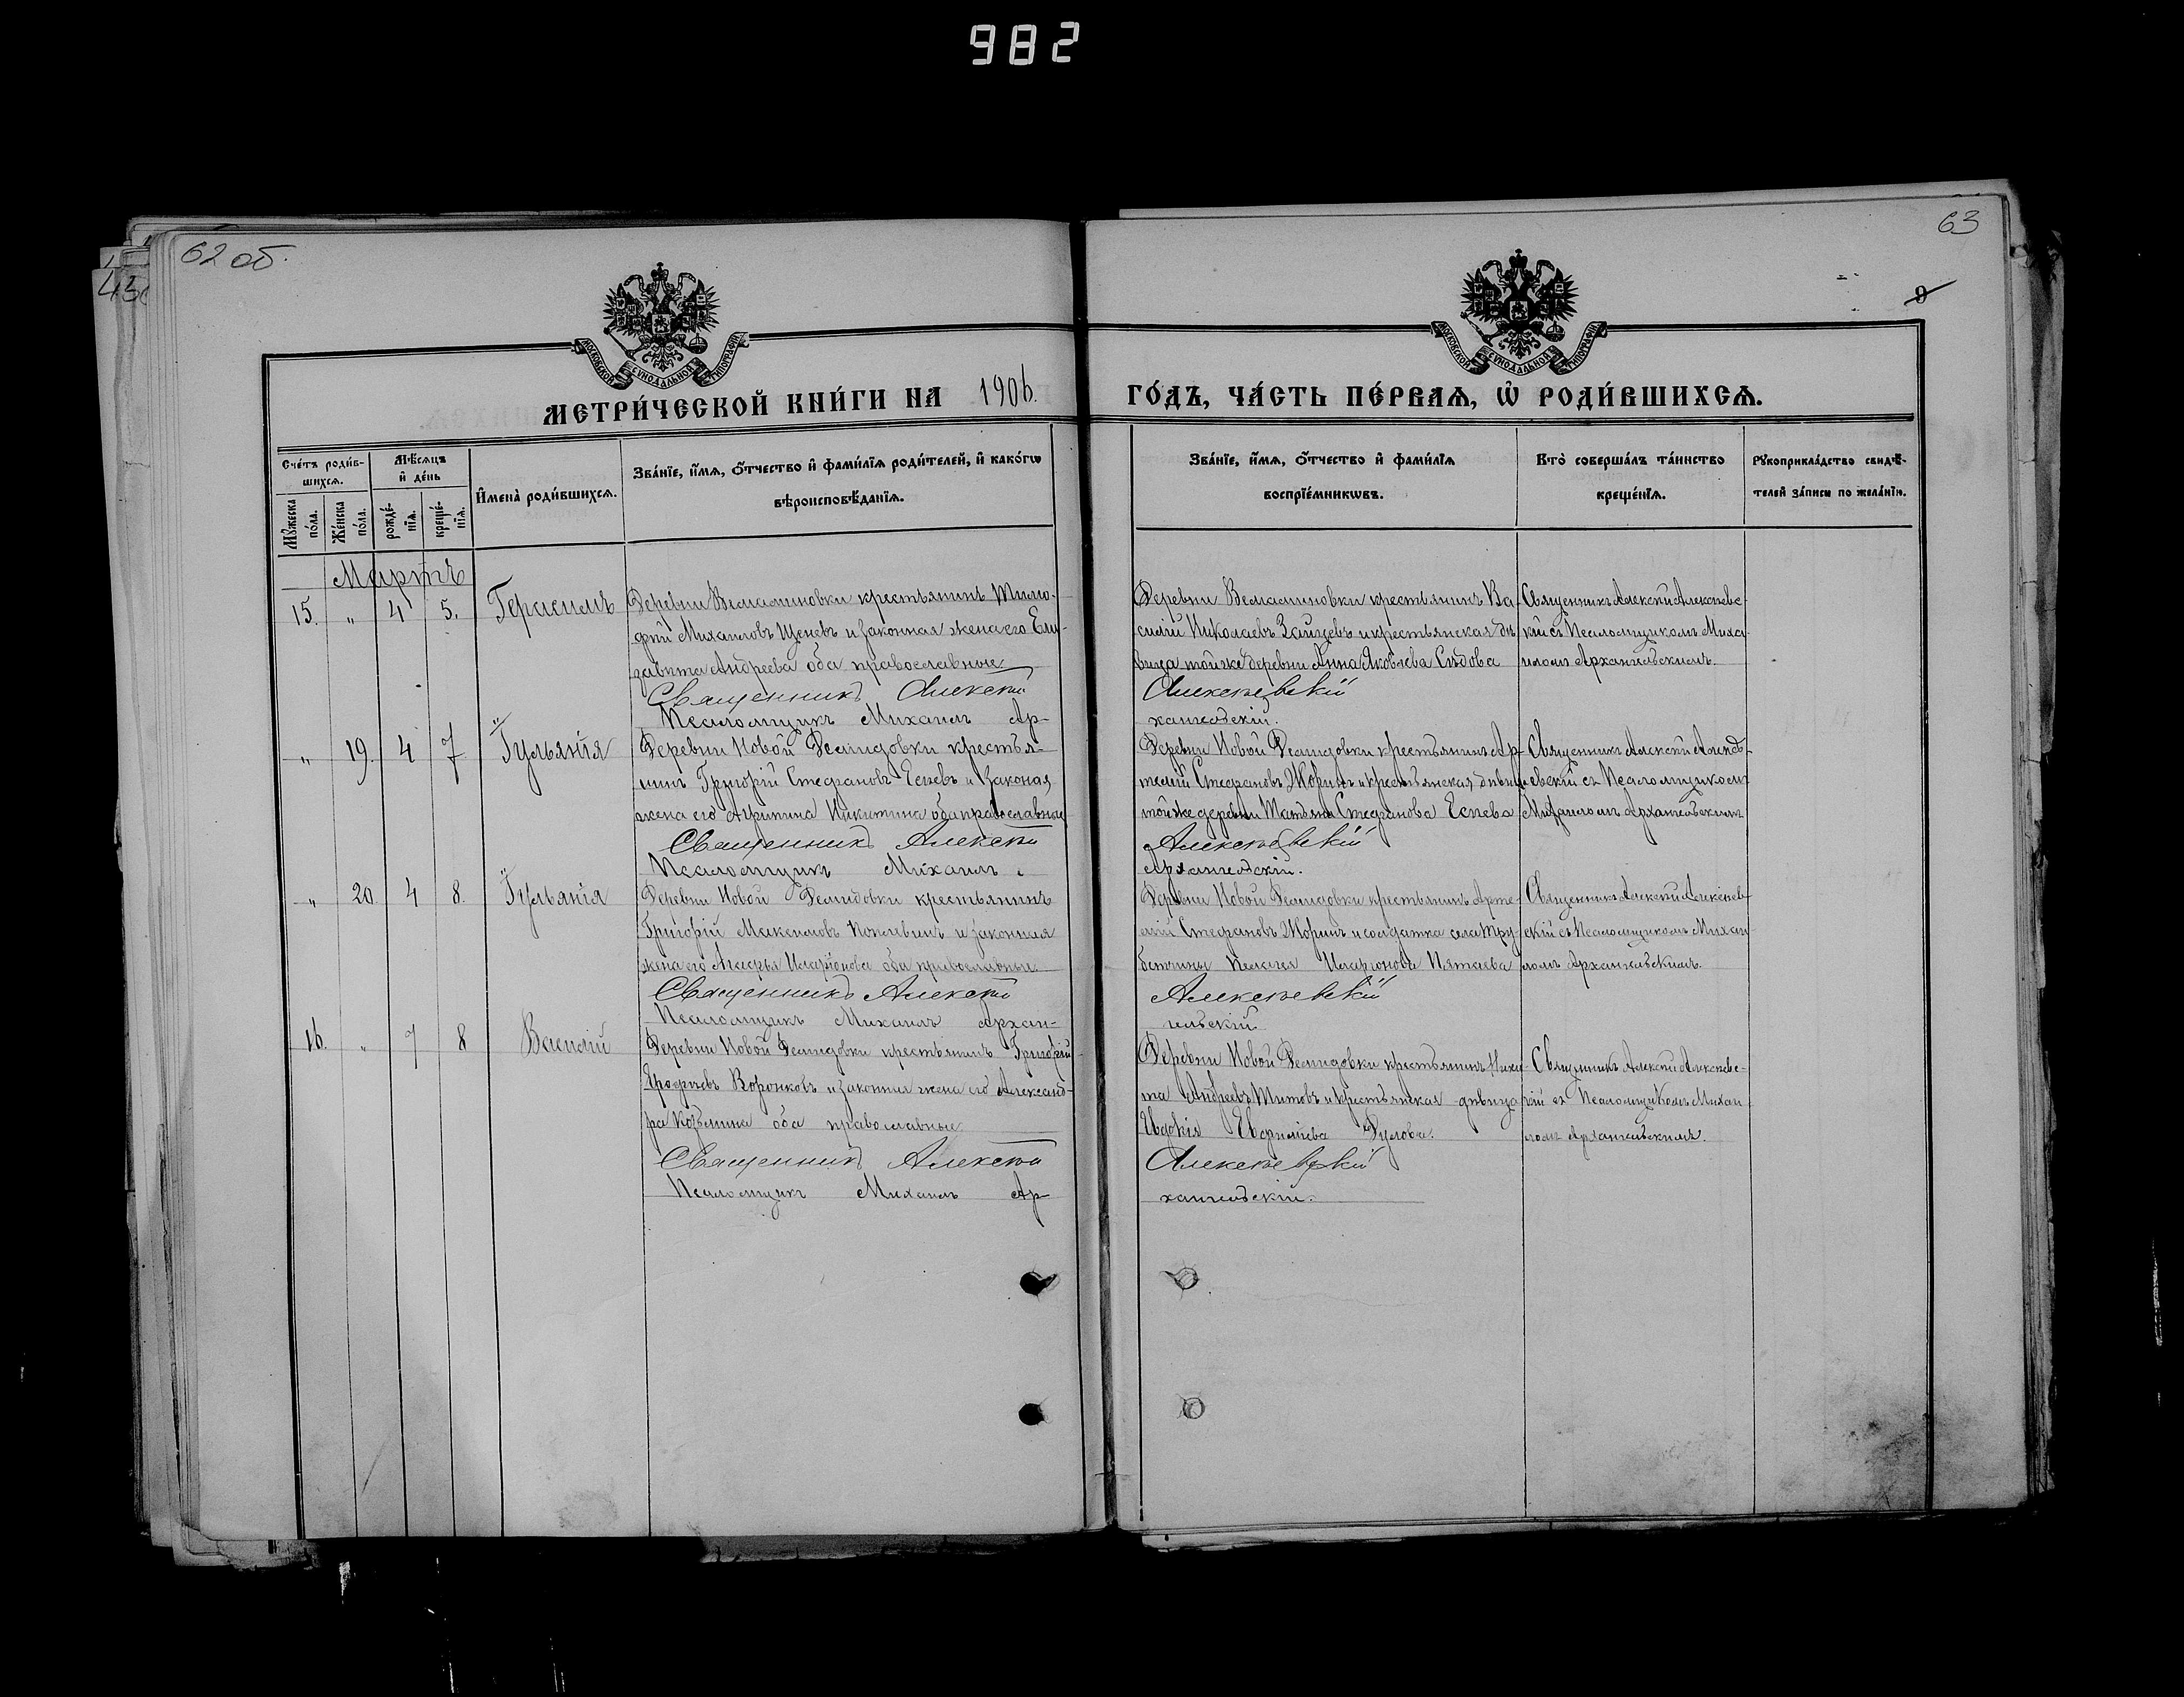 982
62 об.
63
9
43
МОСКОВСКОЙ СѴНОДАЛЬНОЙ ТИПОГРАФІИ
МОСКОВСКОЙ СѴНОДАЛЬНОЙ ТИПОГРАФІИ
МЕТРИ́ЧЕСКОЙ КНИ́ГИ НА 1906. ГО́ДЪ, ЧА́СТЬ ПЕ́РВАѦ, Ѡ҆ РОДИ́ВШИХСѦ.
Сче́тъ роди́в-
шихсѧ.
Мꙋ́жеска
по́ла.
Же́нска
по́ла.
Мѣ́сѧцъ
и҆ де́нь
рожде́-
нїѧ.
креще́-
нїѧ.
И҆мена̀ роди́вшихсѧ.
Зва́нїе, и҆́мѧ, ѻ҆́тчество и҆ фами́лїѧ роди́телей, и҆ како́гѡ
вѣроисповѣ́данїѧ.
Зва́нїе, и҆́мѧ, ѻ҆́тчество и҆ фами́лїѧ
воспрїе́мникѡвъ.
Кто̀ соверша́лъ та́инство
креще́нїѧ.
Рꙋкоприкла́дство свидѣ́-
телей за́писи по жела́нїю.
Мартъ
15. „ 4 5. Герасимъ
Деревни Вельяминовки крестьянинъ Тимо-
фей Михаиловъ Щеневъ и законная жена его Ели-
завета Андреева оба православные
Священникъ Алексѣй
Псаломщикъ Михаилъ Ар-
Деревни Вельяминовки крестьянинъ Ва-
силій Николаевъ Зайцевъ и крестьянская дѣ
вица той же деревни Анна Яковлева Сѣдова
Алексѣевскій
хангельскій.
Священникъ Алексѣй Алексѣевс-
кій съ Псаломщикомъ Миха-
иломъ Архангельскимъ.
„ 19. 4 7 Іуліанія
Деревни Новой Демидовки крестья-
нинъ Григорій Стефановъ Есневъ и законая
жена его Агрипина Никитина оба православные
Священникъ Алексѣй
Псаломщикъ Михаилъ
Деревни Новой Демидовки крестьянинъ Ар-
темій Стефановъ Жоринъ и крестьянская дѣвица
той же деревни Татьяна Стефанова Еснева
Алексѣевскій
Архангельскій.
Священникъ Алексѣй Алексѣ-
евскій съ Псаломщикомъ
Михаиломъ Архангельскимъ
„ 20. 4 8. Іуліанія
Деревни Новой Демидовки крестьянинъ
Григорій Максимовъ и законная
жена его Иларіонова оба православные
Священникъ Алексѣй
Псаломщикъ Михаилъ Архан-
Деревни Новой Демидовки крестьянинъ Арте-
мій Стефановъ Жоринъ и солдатка села Тру-
бетчины Пелагія Иларіонова Пятаева
Алексѣевскій
гельскій
Священникъ Алексѣй Алексѣев-
скій съ Псаломщикомъ Михаи
ломъ Архангельскимъ.
16. „ 7 8 Василій
Деревни Новой Демидовки крестьянинъ Григорій
Ерофѣевъ Воронковъ и законная жена его Александ-
ра Козьмина оба православные
Священникъ Алексѣй
Псаломщикъ Михаилъ Ар-
Деревни Новой Демидовки крестьянинъ Ники-
та Андреевъ Титовъ и крестьянская дѣвица
Евдокія Дулова.
Алексѣевскій
хангельскій.
Священникъ Алексѣй Алексѣевс-
кій съ Псаломщикомъ Михаи
ломъ Архангельскимъ.